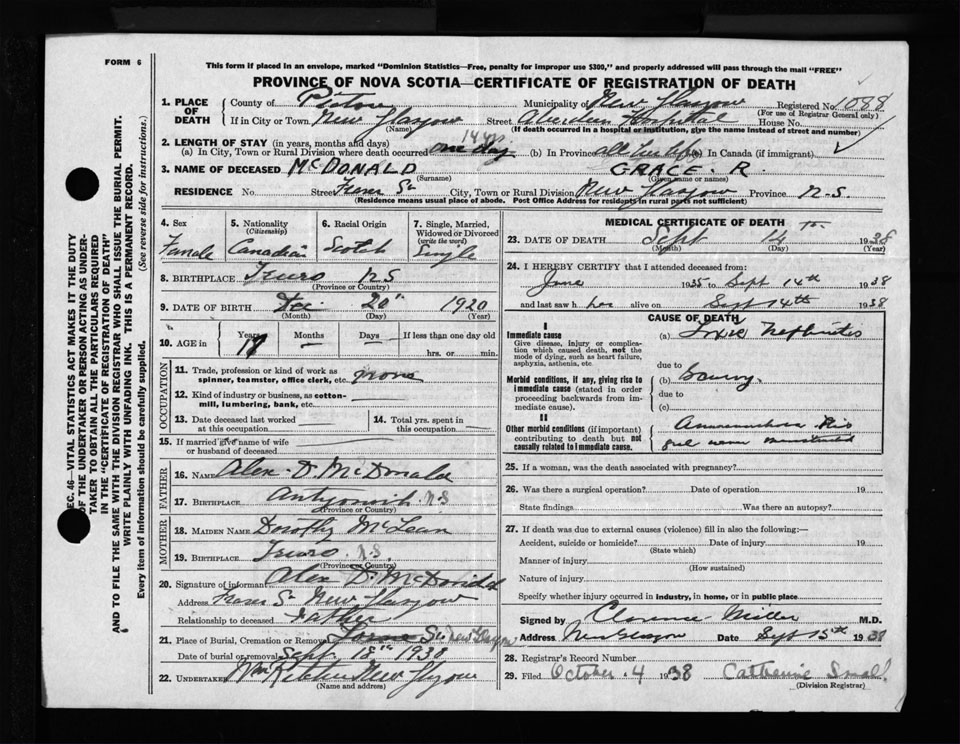 FORM 6
This form if placed in an envelope, marked "Dominion Statistics—Free, penalty for improper use $300," and properly addressed will pass through the mail "FREE"
PROVINCE OF NOVA SCOTIA—CERTIFICATE OF REGISTRATION OF DEATH
1. PLACE OF DEATH
County of Pictou Municipality of New Glasgow Registered No. 1088
(For use of Registrar General only)
If in City or Town New Glasgow Street Aberdeen Hospital House No.
(Name) (If death occurred in a hospital or institution, give the name instead of street and number)
2. LENGTH OF STAY (in years, months and days) 14 yrs
(a) In City, Town or Rural Division where death occurred one day (b) In Province all her life (c) In Canada (if immigrant)
3. NAME OF DECEASED McDONALD GRACE. R.
(Surname) (Given name or names)
RESIDENCE No. Street Fraser St City, Town or Rural Division New Glasgow Province N.S.
(Residence means usual place of abode. Post Office Address for residents in rural parts not sufficient)
4. Sex Female
5. Nationality (Citizenship) Canadian
6. Racial Origin Scotch
7. Single, Married, Widowed or Divorced (write the word) Single
8. BIRTHPLACE Truro N S
(Province or Country)
9. DATE OF BIRTH Dec 20" 1920
(Month) (Day) (Year)
10. AGE in Years 17 Months — Days — If less than one day old hrs. or min.
OCCUPATION
11. Trade, profession or kind of work as spinner, teamster, office clerk, etc. none
12. Kind of industry or business, as cotton-mill, lumbering, bank, etc.
13. Date deceased last worked at this occupation
14. Total yrs. spent in this occupation
15. If married give name of wife or husband of deceased
FATHER
16. NAME Alex D. McDonald
17. BIRTHPLACE Antigonish N.S
(Province or Country)
MOTHER
18. MAIDEN NAME Dorothy McLean
19. BIRTHPLACE Truro. N.S.
(Province or Country)
20. Signature of informant Alex D. McDonald
Address Fraser St New Glasgow
Relationship to deceased Father
21. Place of Burial, Cremation or Removal Lorne St. New Glasgow
Date of burial or removal Sept. 18th 1938
22. UNDERTAKER New Glasgow
(Name and address)
MEDICAL CERTIFICATE OF DEATH
23. DATE OF DEATH Sept 14 Th. 1938
(Month) (Day) (Year)
24. I HEREBY CERTIFY that I attended deceased from:
June 1935 to Sept 14th 1938
and last saw her alive on Sept 14th 1938
CAUSE OF DEATH
I
Immediate cause (a) Nephritis
Give disease, injury or complication which caused death, not the mode of dying, such as heart failure, asphyxia, asthenia, etc.
due to
Morbid conditions, if any, giving rise to immediate cause (stated in order proceeding backwards from immediate cause).
(b)
due to
(c)
II
Other morbid conditions (if important) contributing to death but not causally related to immediate cause.
girl never menstruated
25. If a woman, was the death associated with pregnancy?
26. Was there a surgical operation? Date of operation 19
State findings Was there an autopsy?
27. If death was due to external causes (violence) fill in also the following:—
Accident, suicide or homicide? Date of injury 19
(State which)
Manner of injury
(How sustained)
Nature of injury
Specify whether injury occurred in industry, in home, or in public place
Signed by Clarence Miller M.D.
Address New Glasgow Date Sept 15th 1938
28. Registrar's Record Number
29. Filed October 4 1938 Catherine Small
(Division Registrar)
SEC. 46—VITAL STATISTICS ACT MAKES IT THE DUTY
OF THE UNDERTAKER OR PERSON ACTING AS UNDER-
TAKER TO OBTAIN ALL THE PARTICULARS REQUIRED
IN THE "CERTIFICATE OF REGISTRATION OF DEATH"
AND TO FILE THE SAME WITH THE DIVISION REGISTRAR WHO SHALL ISSUE THE BURIAL PERMIT.
WRITE PLAINLY WITH UNFADING INK. THIS IS A PERMANENT RECORD.
Every item of information should be carefully supplied. (See reverse side for instructions.)